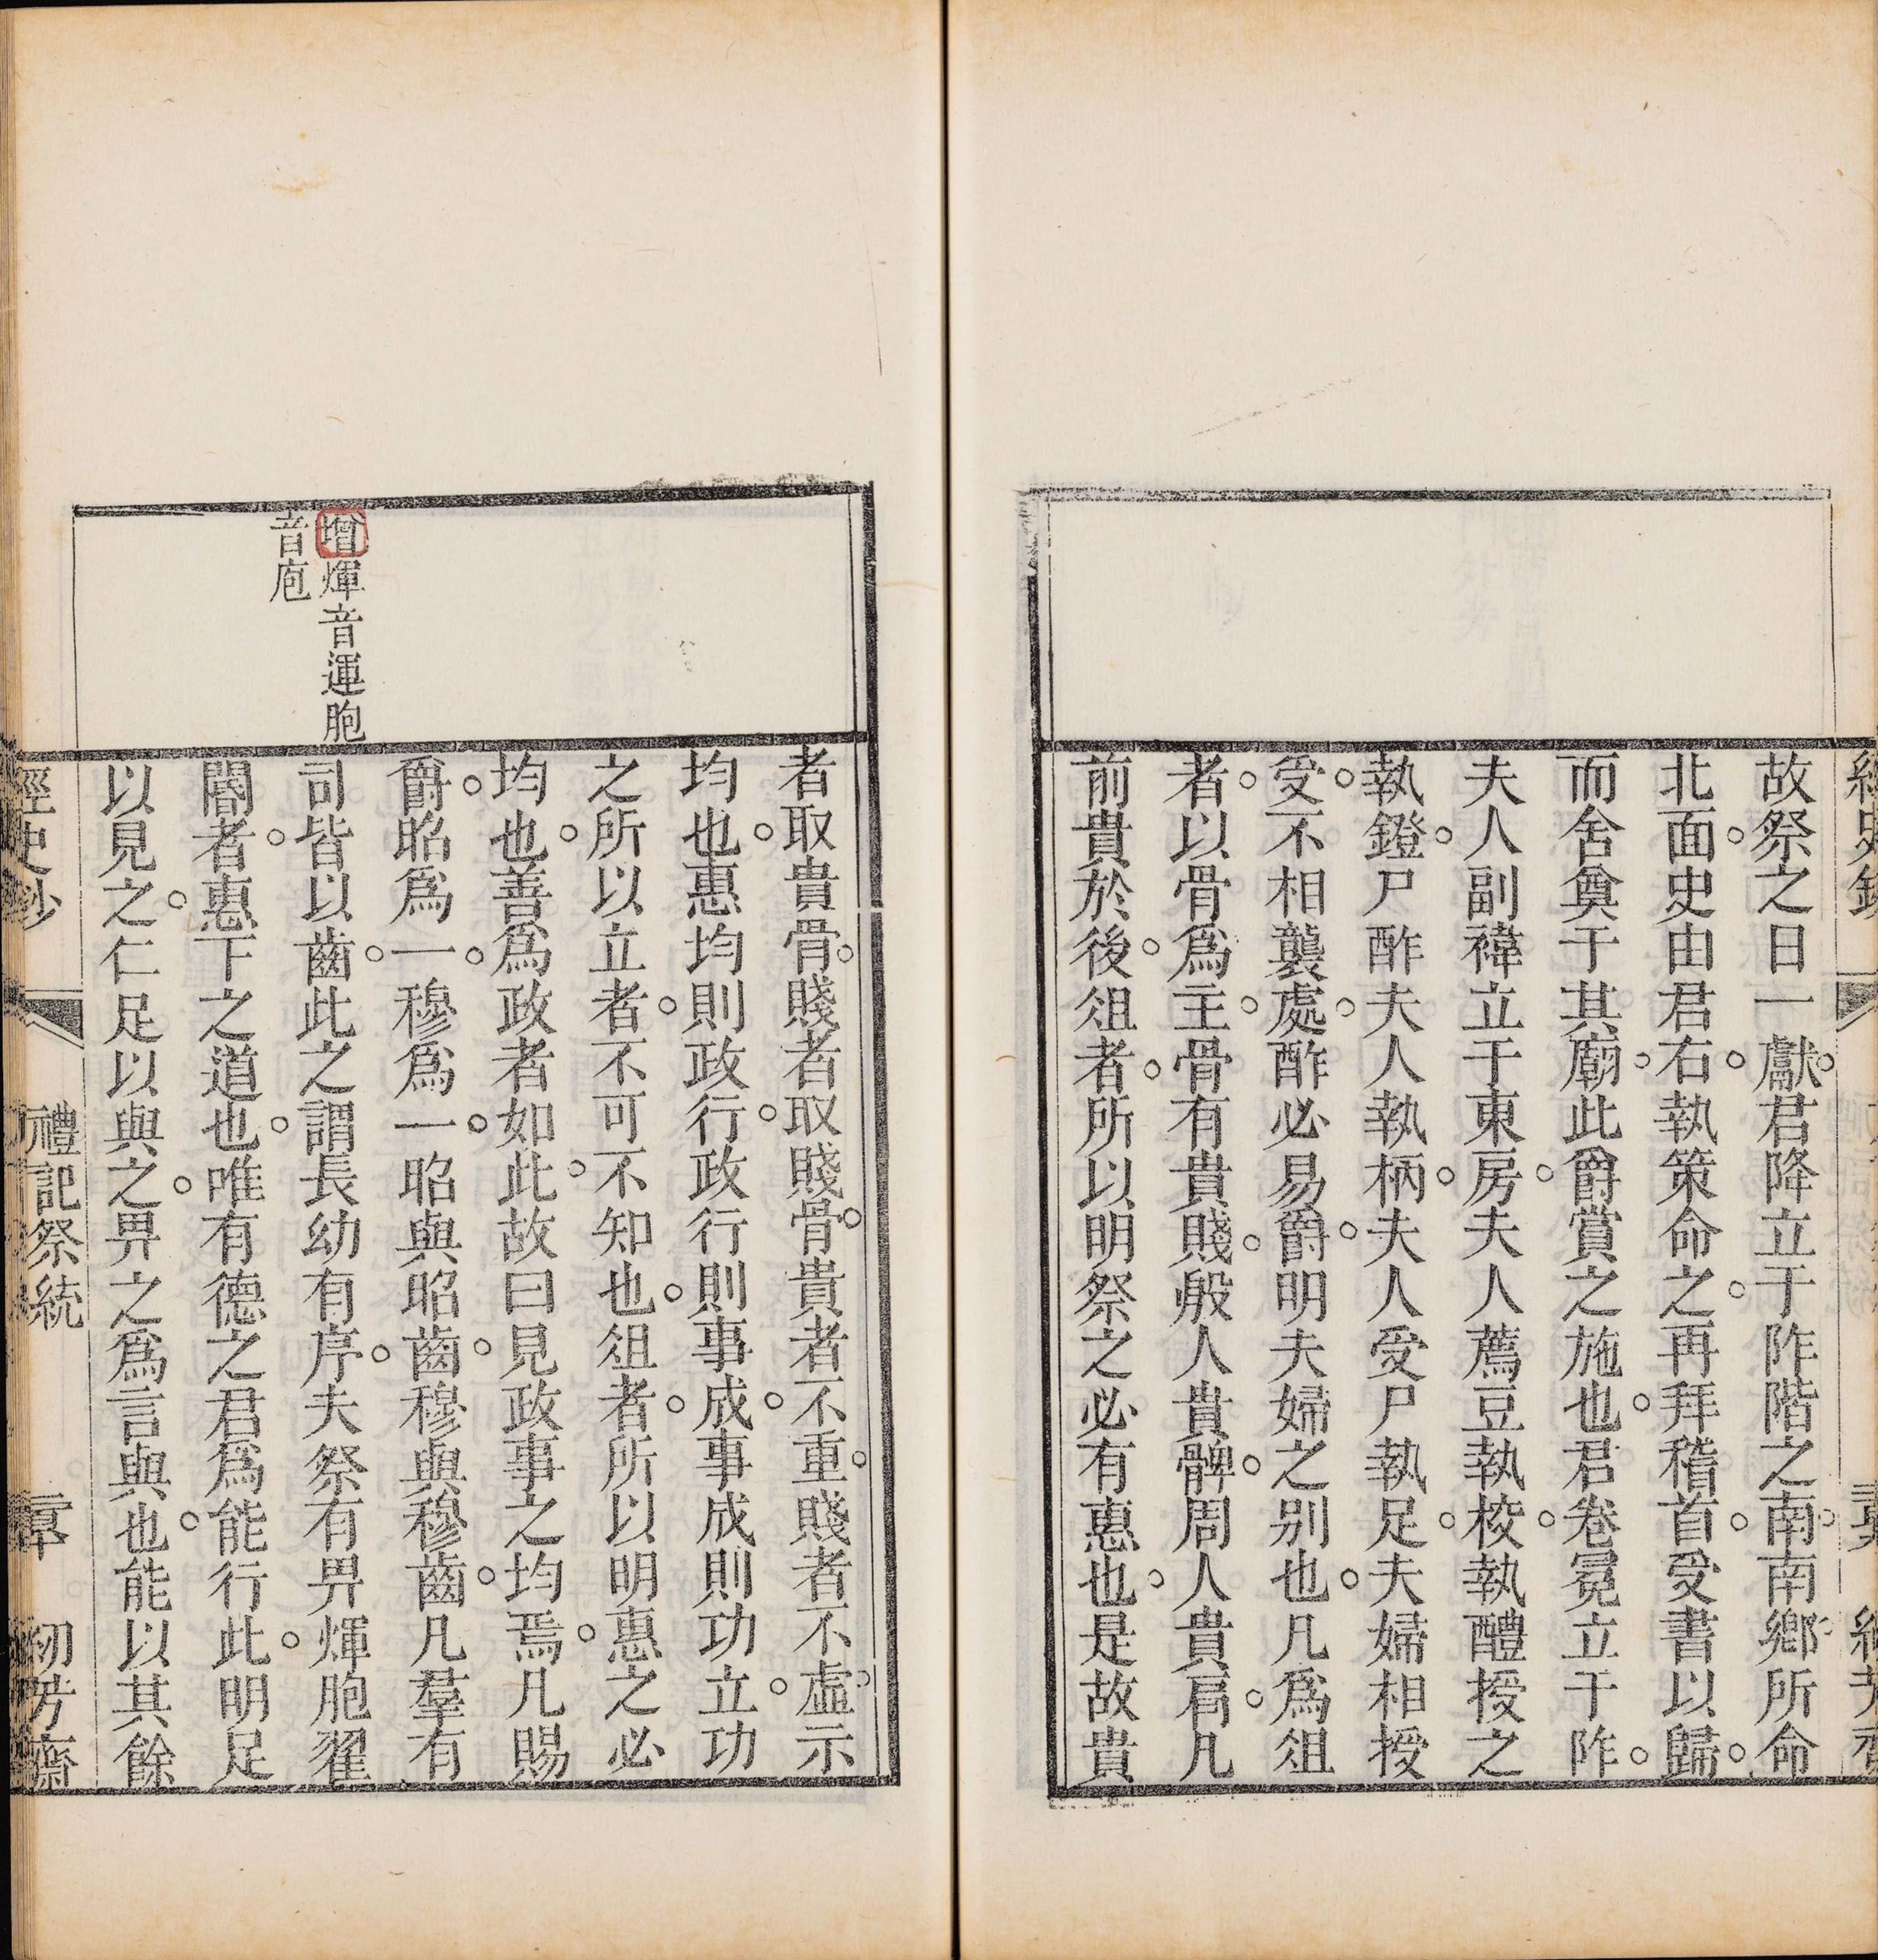 故祭之日一獻。君降立于阼階之南。南鄉。所命
北面。史由君右。執策命之。再拜稽首。受書以歸。
而舍奠于其廟。此爵賞之施也。君卷冕立于阼。
夫人副褘立于東房。夫人薦豆執校。執醴授之
執鐙。尸酢夫人執柄。夫人受尸執足。夫婦相授
受。不相襲處。酢必易爵。明夫婦之别也。凡爲俎
者。以骨爲主。骨有貴賤。殷人貴髀。周人貴肩。凡
前貴於後。俎者。所以明祭之必有惠也。是故貴
者取貴骨。賤者取賤骨。貴者不重。賤者不虛。示
均也。惠均則政行。政行則事成。事成則功立。功
之所以立者。不可不知也。俎者。所以明惠之必
均也。善爲政者如此。故曰見政事之均焉。凡賜
爵。昭爲一。穆爲一。昭與昭齒。穆與穆齒。凡羣有
增煇音運胞
音庖
司皆以齒。此之謂長幼有序。夫祭有畀煇胞翟
閽者。惠下之道也。唯有德之君爲能行此。明足
以見之。仁足以與之。畀之爲言與也。能以其餘
經史鈔 禮記祭統 章 紉芳齋